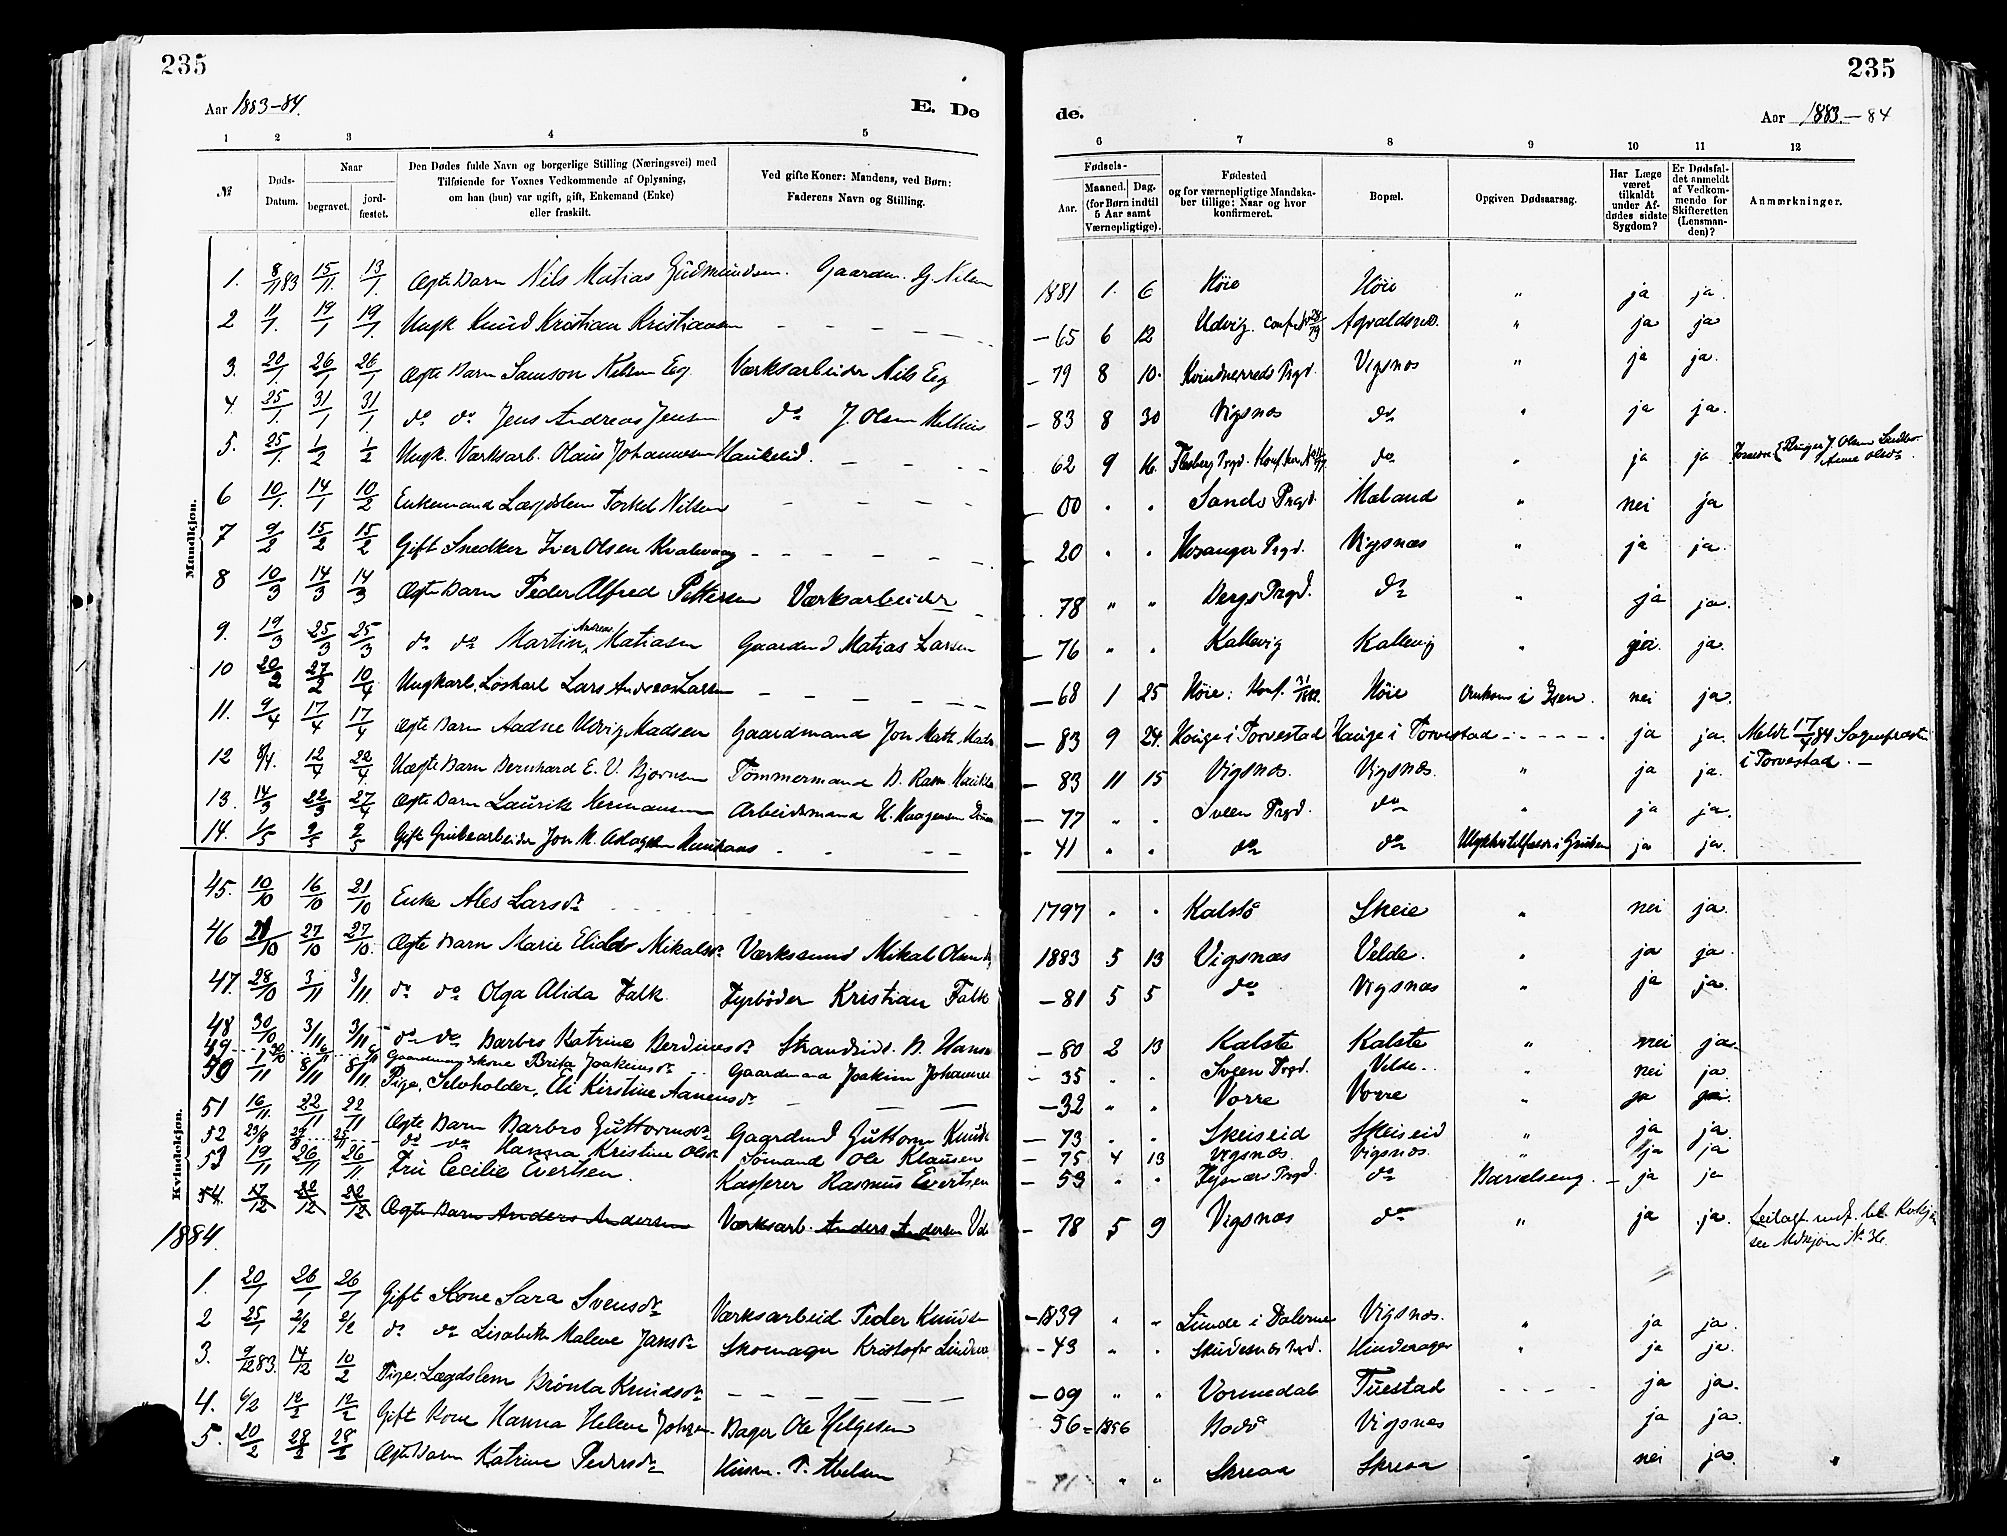 235
235
Aar 1883-84.
E. Dø
de.
Aar 1883.-84
1 2 3 4 5
6 7 8 9 10 11 12
№
Døds-Datum.
Naar
begravet.
jord-fæstet.
Den Dødes fulde Navn og borgerlige Stilling (Næringsvei) med
Tilføiende for Voxnes Vedkommende af Oplysning,
om han (hun) var ugift, gift, Enkemand (Enke)
eller fraskilt.
Ved gifte Koner: Mandens, ved Børn:
Faderens Navn og Stilling.
Fødsels-
Aar.
Maaned. Dag.
(for Børn indtil
5 Aar samt
Værnepligtige).
Fødested
og for værnepligtige Mandska-
ber tillige: Naar og hvor
konfirmeret.
Bopæl.
Opgiven Dødsaarsag.
Har Læge
været
tilkaldt
under Af-
dødes sidste
Sygdom?
Er Dødsfal-
det anmeldt
af Vedkom-
mende for
Skifteretten
(Lensman-
den)?
Anmærkninger.
Mandkjøn.
1. 8/1 83 15/11. 13/1 Ægte Barn Nils Matias Gudmundsen. Gaardm. G. Nilsen 1881 1. 6 Høie Høie " ja ja.
2 11/1. 19/1 19/1. Ungk Knud Kristian Kristiansen - - - - - 65 6 12 Udvig. " ja ja
3. 20/1. 26/1 26/1 Ægte Barn Samson Nilsen Eeg Værksarbeider Nils Eeg - 79 8 10. Kvindherreds Prgd. Vigsnæs " ja ja.
4. 25/1. 31/1 31/1 do do Jens Andreas Jensen do J. Olsen - 83 8 30 Vigsnæs do " ja ja.
5. 25/1. 1/2 1/2 Ungk. Værksarb. Olaus Johannesen Haukelid. - - - 62 9 16. Flesberg Prgd. do " ja ja
6 10/1. 14/1 10/2 Enkemand Lægdslem Torkel Nilsen - - - - 00 " " Sands Prgd. Mæland " nei ja
7 9/2 15/2 15/2 Gift Snedker Iver Olsen Kvalevaag - - - - - 20 " " Hosanger Prgd. Vigsnæs " ja ja.
8 10/3 14/3 14/3 Ægte Barn Peder Alfred Pettersen Værksarbeider - 78 " " Bergs Prgd. do " ja ja.
9. 19/3 25/3 25/3 do do Martin Andreas Matiasen Gaardmd Matias Larsen - 76 " " Kallevig Kallevig " ja. ja.
10 20/2 27/2 10/4 Ungkarl, Løskarl Lars Andreas Larsen - - - - 68 1 25 Høie: Konf. Høie nei ja.
11. 9/4 17/4 17/4 Ægte Barn Aadne Udvig Madsen Gaardmand Jon - 83 9 24. Hauge i Torvestad Hauge i Torvestad - - - - - ja ja. Meldt 17/4 84 Sognepræst
i Torvestad. -
12 8/4. 12/4 22/4 Uægte Barn Bernhard E. V. Bjørnsen Tømmermand B. - 83 11 15 Vigsnæs. Vigsnæs. " ja ja.
13. 14/3 22/3 27/4 Ægte Barn Laurits Hermansen Arbeidsmand H. - 77 " " Sveen Prgd. do " ja ja.
14. 1/5 9/5 9/5 Gift Grubearbeider Jon M. - - - - 41 " " do do Ulykkestilfælde i Gruben ja ja.
Kvindekjøn.
45. 10/10 16/10 21/10 Enke Ales Larsdr 1797 " " Kalstø Skeie " nei ja.
46 21/10 27/10 27/10. Ægte Barn Marie Mikalsdr Mikal Olsen 1883 5 13 Vigsnæs Velde. " ja ja.
47. 28/10 3/11 3/11. do do Olga Alida Falk Fyrbøder Kristian Falk - 81 5 5 do Vigsnæs " ja ja.
48 30/10 3/11 3/11 do do Barbro Katrine Berdinesdr Strandsid. B. Hansen - 80 2 13 Kalstø Kalstø " nei ja.
49 Gaardmandskone Brita Joakimsdr Gaardmand Joakim Johannes - 35 " " Sveen Prgd. Velde. " nei ja
50 1/11 8/11 8/11. Pige, Selvholder, Eli Kirstine Aanensdr - - - - 32 " " Vorre Vorre " ja ja.
51 16/11. 22/11 22/11 Ægte Barn Barbro Guttormsdr Gaardmd Guttorm Knuds - 73 " " Skeiseid Skeiseid " ja ja.
52 23/8 do do Hanna Kristine Olsdr Sømand Ole Klausen - 75. 4 13 Vigsnæs. Vigsnæs. " ja ja
53 19/11 26/11 26/11. Fru Cecilie Evertsen. Kasserer Rasmus Evertsen - 53 " " do Barselseng - ja ja
54. 17/12 22/12 22/12 Ægte Barn Anders Andersen Værksarb. Anders Andersen - 78 5 9 Vigsnæs do " ja ja.
see Mdkjøn No 36.
1884.
1. 20/1 26/1 26/1 Gift Kone Sara Svensdr Værksarbeid Peder Knuds - 1839 " " Lunde i Dalerne Vigsnæs. " ja ja.
2 25/1 2/2 2/2 do do Lisabeth Malene Jansdr Skomager Kristofer - 43 " " Skudesnæs Prgd. Hinderager " ja ja.
3. 9/12 83. 14/12 10/2 Pige, Lægdslem Brønla Knudsdr - - - - - - 09 " " Vormedal Tuestad - - - - ja ja.
4. 6/2 12/2 12/2 Gift Kone Hanna Helene Johnsen. Bager Ole Helgesen 56 = 1856 Bodø Vigsnæs ja ja.
5. 20/2 28/2 28/2 Ægte Barn Katrine Pedersdr Husm. P. Abelsen - 71 " " Skreaa Skreaa " nei ja.